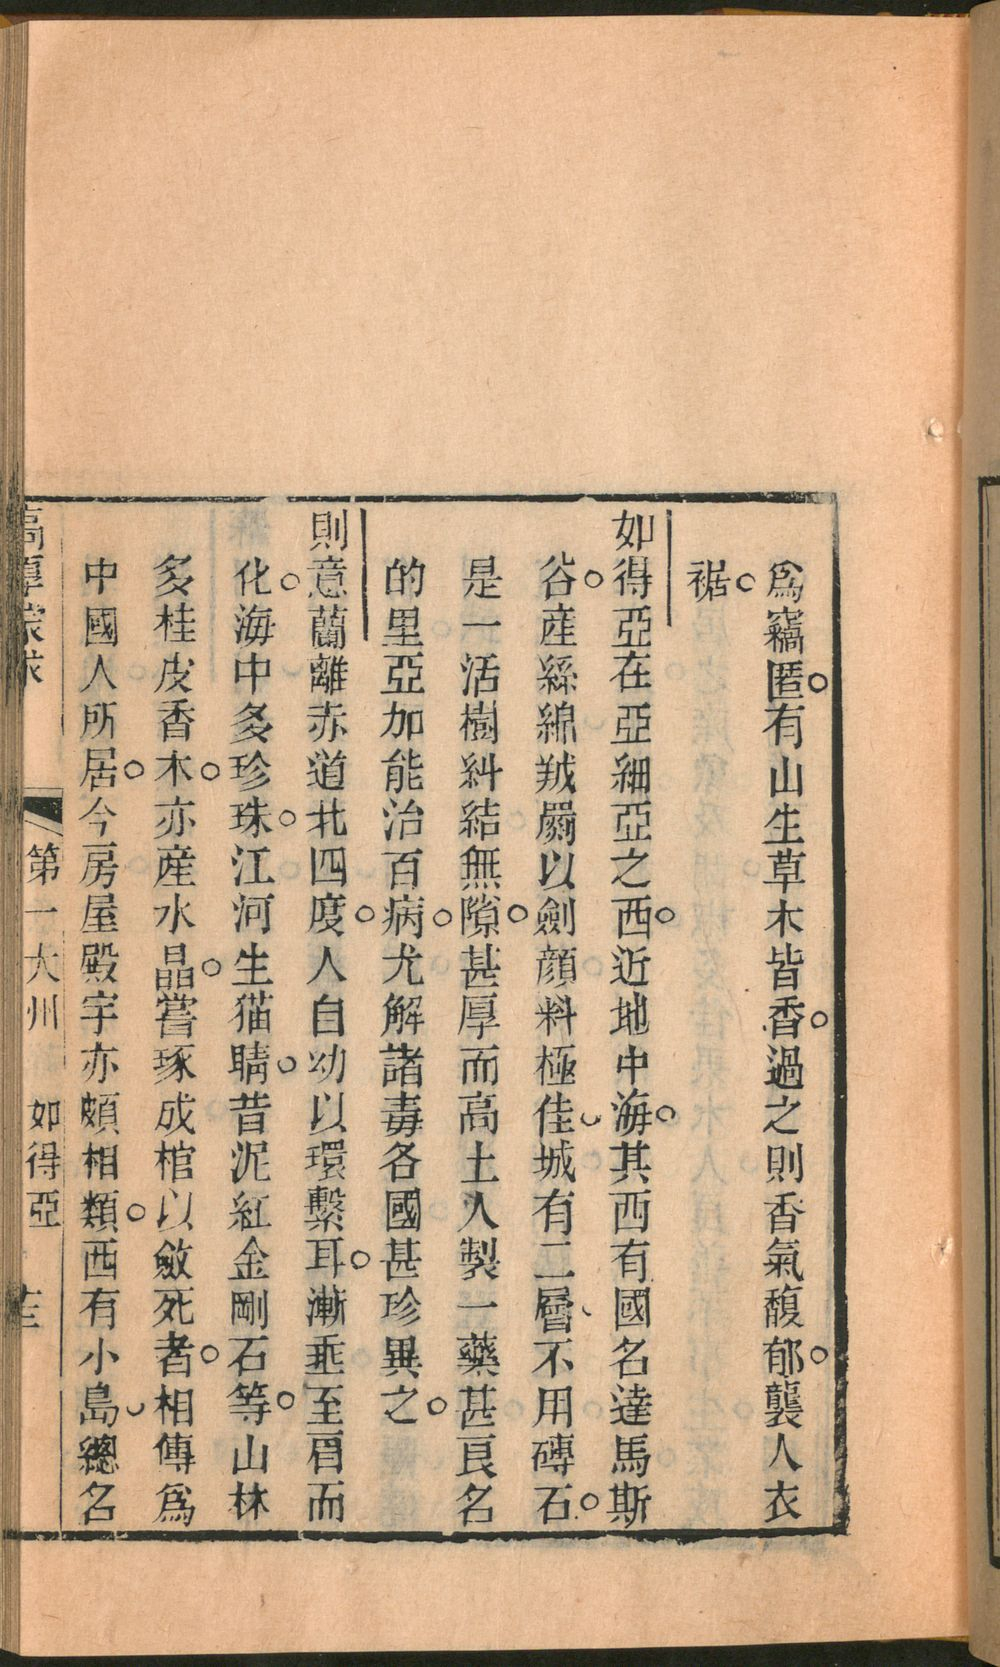 爲竊匿。有山生草木皆香。過之則香氣馥郁。襲人衣
裾。
如得亞在亞細亞之西。近地中海。其西有國名達馬斯
谷。產絲綿羢罽以劍顏料極佳、城有二層、不用磚石。
是一活樹糾結無隙。甚厚而高土人製一藥甚良名
的里亞加能治百病。尤解諸毒各國甚珍異之。
則意蘭離赤道北四度。人自幼以環繫耳。漸垂至眉而
化。海中多珍珠。江河生猫睛。昔泥紅金剛石等。山林
多桂皮香木。亦產水晶。嘗琢成棺以斂死者。相傳爲
中國人所居。今房屋殿宇亦頗相類。西有小島、總名
第一大州 如得亞